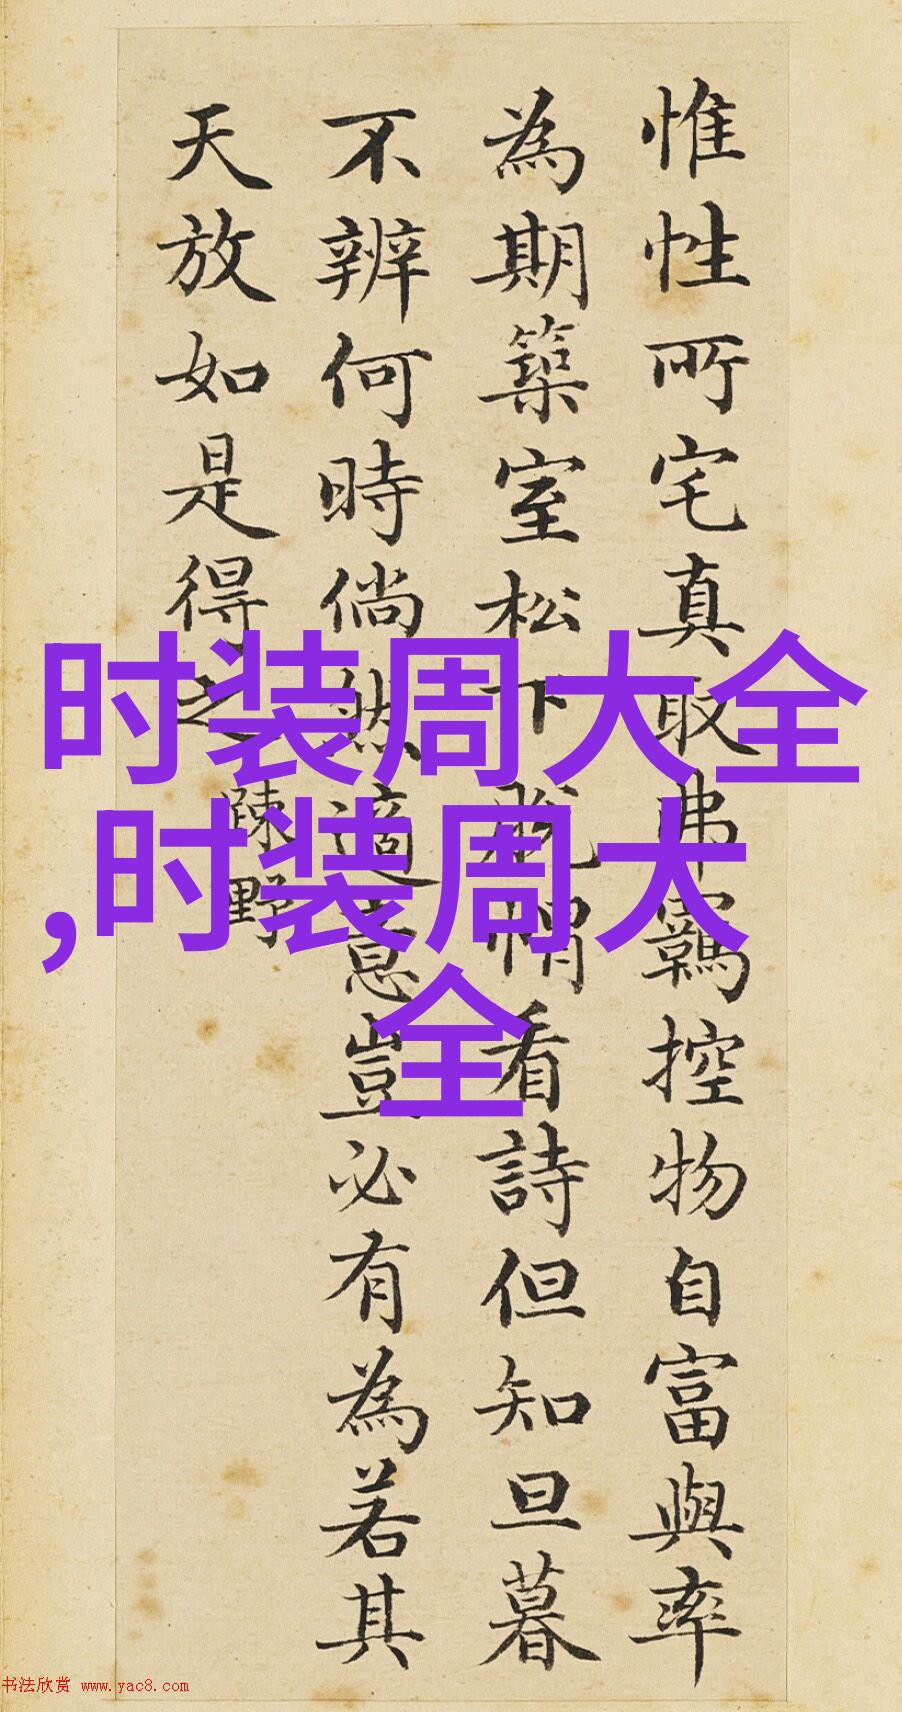 惟性所宅真取弗羈控物自富與率
為期築室松下脫帽看詩但知旦暮
不辨何時倘然適意豈必有為若其
天放如是得之
疎野
时装周大全
,时装周大
全
书法欣赏 www.yac8.com